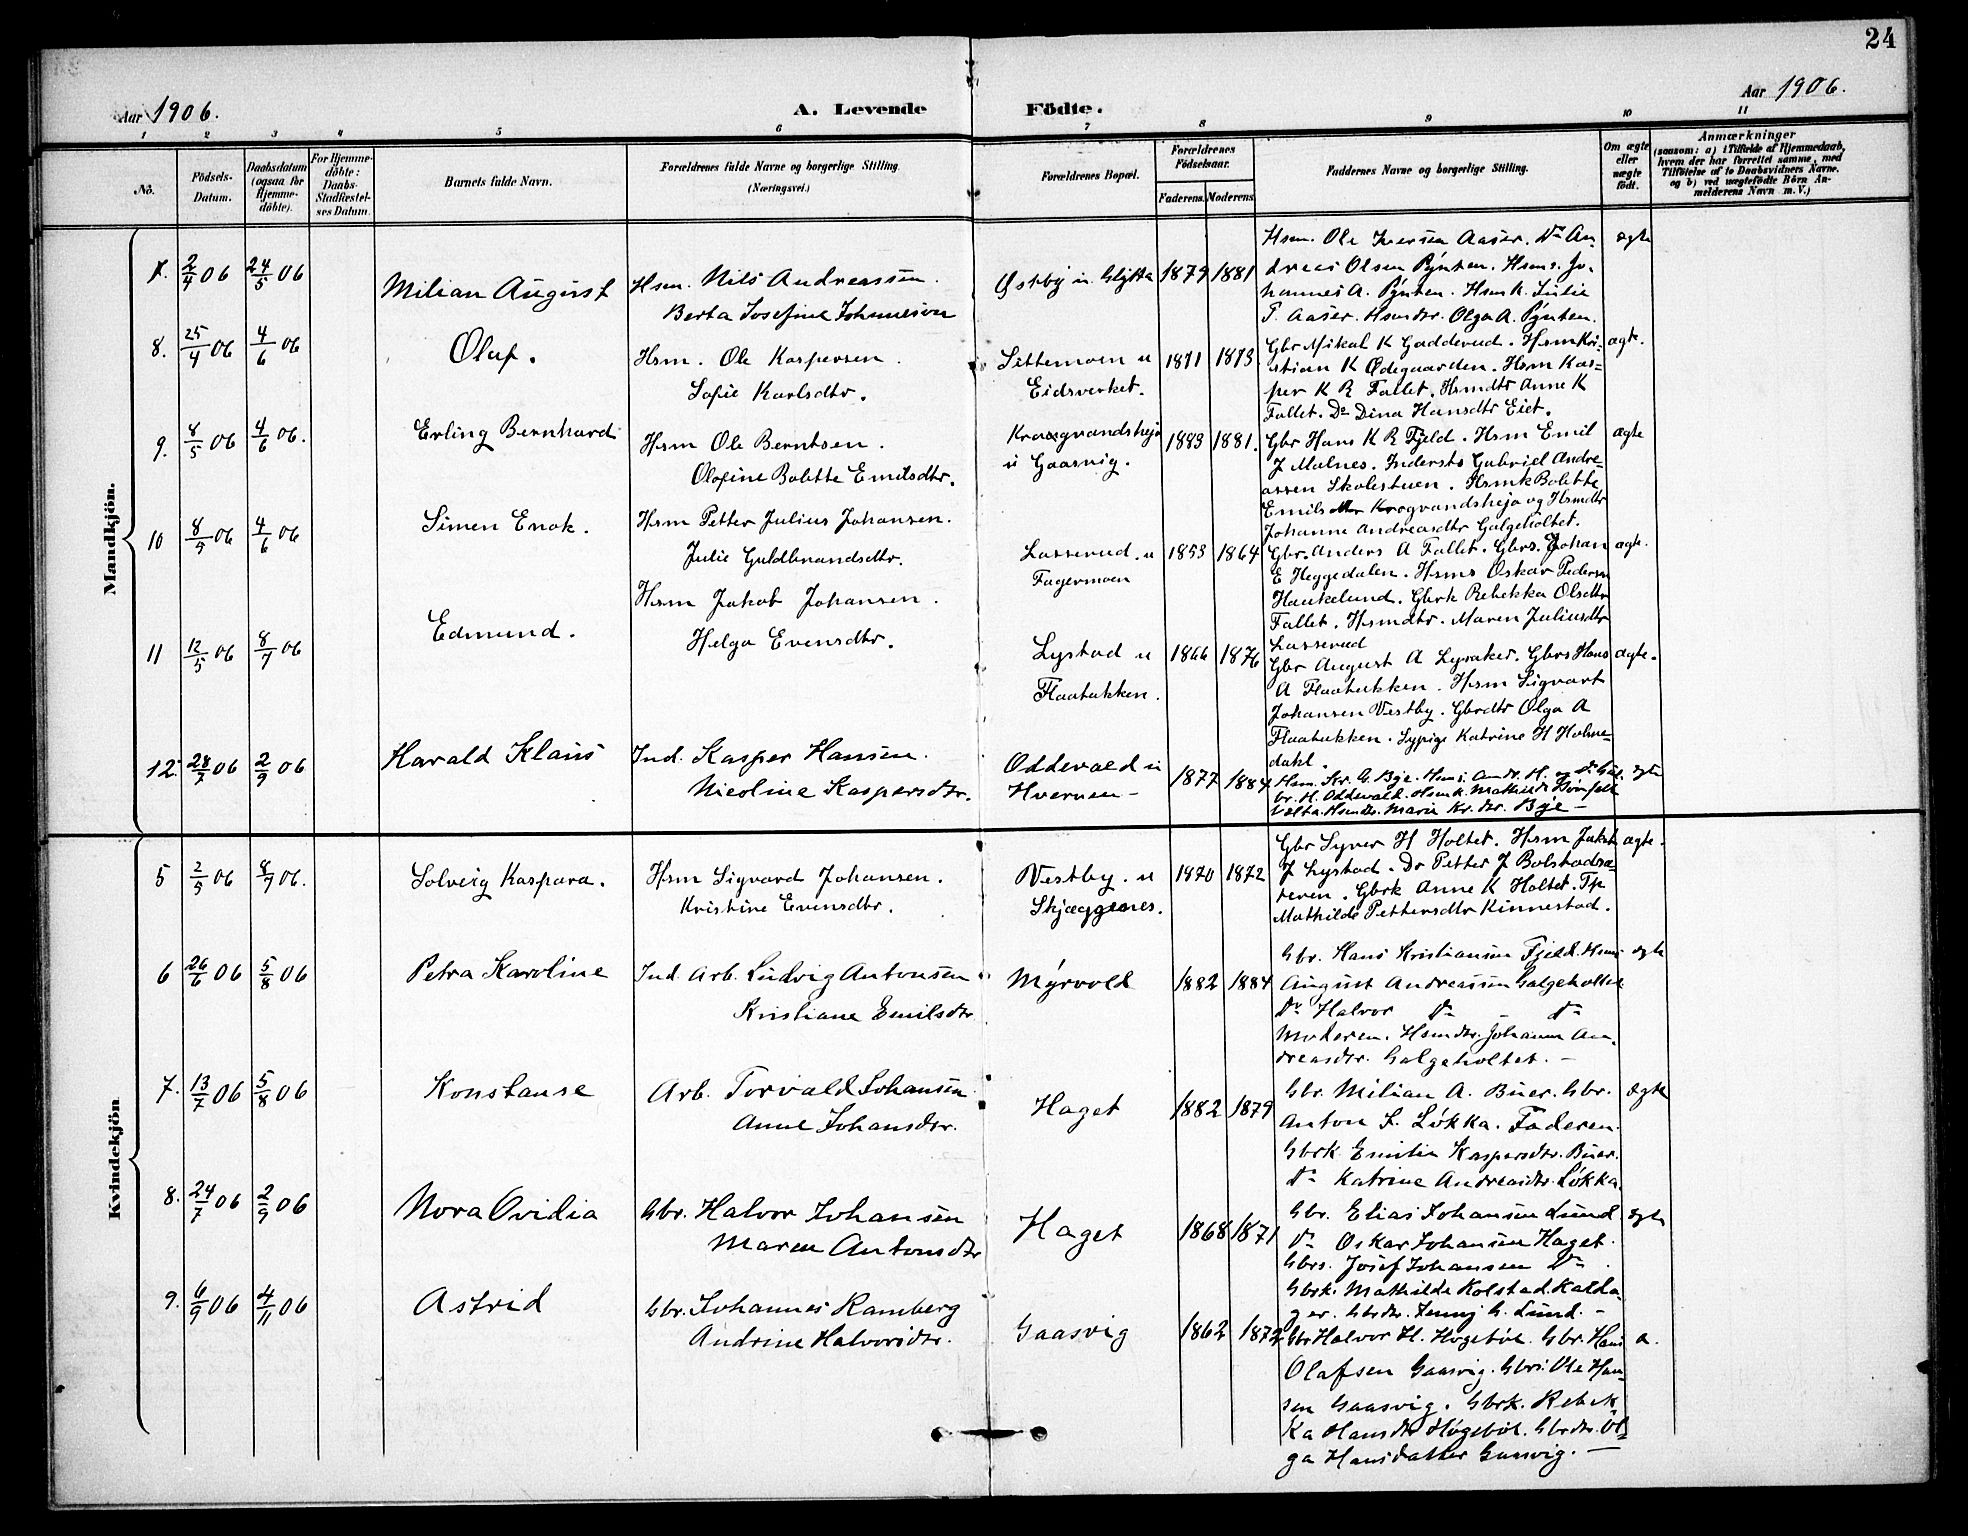 24
Aar 1906.
A. Levende Födte.
Aar 1906.
1 2 3 4 5 6 7 8 9 10 11
No.
Födsels-Datum.
Daabsdatum (ogsaa for Hjemme-döbte).
For Hjemme-döbte: Daabs-Stadfæstel-ses Datum.
Barnets fulde Navn.
Forældrenes fulde Navne og borgerlige Stilling.
(Næringsvei.)
Forældrenes Bopæl.
Forældrenes Födselsaar.
Faderens. Moderens.
Faddernes Navne og borgerlige Stilling.
Om ægte eller uægte födt.
Anmærkninger
(saasom: a) i Tilfælde af Hjemmedaab,
hvem der har forrettet samme, med
Tilföielse af to Daabsvidners Navne,
og b) ved uægtefödte Börn An-
melderens Navn m. V.)
Mandkjön.
7. 2/4 06 24/5 06 Milian August
Hsm. Nils Andreassen.
Berta Josefine Johannesen
Østby u. Slytta 1879 1881
Hsm. Ole Iversen Aaser. Do An-
dreas Olsen Pynten. Hsms. Jo-
hannes A. Pynten. Hsmk. Julie
T. Aaser. Hsmdtr. Olga A. Pynten.
ægte
8. 25/4 06 4/6 06 Olaf.
Hsm. Ole Kaspersen.
Sofie Karlsdtr.
Sittemoen u
Eidsverket.
1871 1873
Gbr Mikal K Gadderud. Hsm Kri-
stian K Ødegaarden. Hsm Kas-
per K R Fallet. Hsmdtr Anne K
Fallet. Do Dina Hansdtr Eiet.
ægte.
9. 8/5 06 4/6 06. Erling Bernhard
Hsm Ole Berntsen.
Olofine Bolette Emilsdtr.
Kroegvandsheja
u Gaasvig.
1883 1881.
Gbr Hans K R Fjeld. Hsm Emil
J Mulnes. Inderste Gabriel Andre-
assen Skolestuen. Hsmk Bolette
Emilsdtr Krogvandsheja og Hsmdtr
Johanne Andreasdtr Galgeholtet.
ægte
10 8/5 06 4/6 06 Simen Enok.
Hsm Petter Julius Johansen.
Julie Guldbrandsdtr.
Lasserud. u
Fagermoen
1853 1864
Gbr. Anders A Fallet. Gbrs. Johan
E Heggedalen. Hsms Oskar Pedersen
Haukelund. Gbrk Rebekka Olsdtr
Fallet. Hsmdtr. Maren Juliusdtr
Lasserud
ægte.
11 12/5 06 8/7 06 Edmund.
Hsm Jakob Johansen.
Helga Evensdtr.
Lystad u
Flaatukken.
1866 1876
Gbr August A Lysaker. Gbrs Hans
A Flaatukken. Hsm Sigvart
Johansen Vestby. Gbrdtr Olga A
Flaatukken. Sypige Katrine H Holme-
dahl.
ægte.
12. 28/7 06 2/9 06 Harald Klaus
Ind. Kasper Hansen.
Nicoline Kaspersdtr.
Oddevald u
Hvernen
1877 1884
Hsm. Kr. G. Bye.
br. H. Oddevald. Hsmk. Mathilde
Hsmdr. Marie Kr. dtr. Bye -
ægte
Kvindekjön
5 2/5 06 8/7 06. Solveig Kaspara.
Hsm Sigvard Johansen.
Kristine Evensdtr.
Vestby. u
Skjæggenes.
1870 1872
Gbr Syver H Holtet. Hsm Jakob
J Lystad. Do Petter J Bolstadsæ-
teren. Gbrk Anne K Holtet. Tp
Mathilde Pettersdtr Kinnestad.
ægte.
6 26/6 06 5/8 06 Petra Karoline
Ind. Arb. Ludvig Antonsen
Kristiane Emilsdtr
Myrvold 1882 1884
Gbr. Hans Kristiansen Fjeld. Hsms
August Andreassen Galgeholtet
Do Halvor Do - Do
Moderen. Hsmdtr. Johanne An-
dreasdtr. Galgeholtet. -
ægte
7. 13/7 06 5/8 06 Konstanse
Arb. Torvald Johansen
Anne Johansdtr.
Haget 1882 1879
Gbr. Milian A. Buer. Gbr.
Anton S. Løkka. Faderen.
Gbrk. Emilie Kaspersdtr. Buer.
Do Katrine Andreasdtr. Løkka.
ægte
8. 24/7 06 2/9 06 Nora Ovidia
Gbr. Halvor Johansen
Maren Antonsdtr
Haget 1868 1871
Gbr. Elias Johansen Lund
Do Oskar Johansen Haget.
Gbrs. Josef Johansen Do
Gbrk. Mathilde Kolstad Kalda-
ger. Gbrdtr. Jenny G. Lund. -
ægte
9. 6/9 06 4/11 06 Astrid
Gbr. Johannes Ramberg
Andrine Halvorsdtr.
Gaasvig 1862 1872
Gbr Halvor H. Høgebøl. Gbr. Hans
Olafsen Gaasvig. Gbrs. Ole Han-
sen Gaasvig. Gbrk. Rebek-
ka Hansdtr Høgebøl. Gbrdtr. Ol-
ga Hansdatter Gaasvig. -
æ.